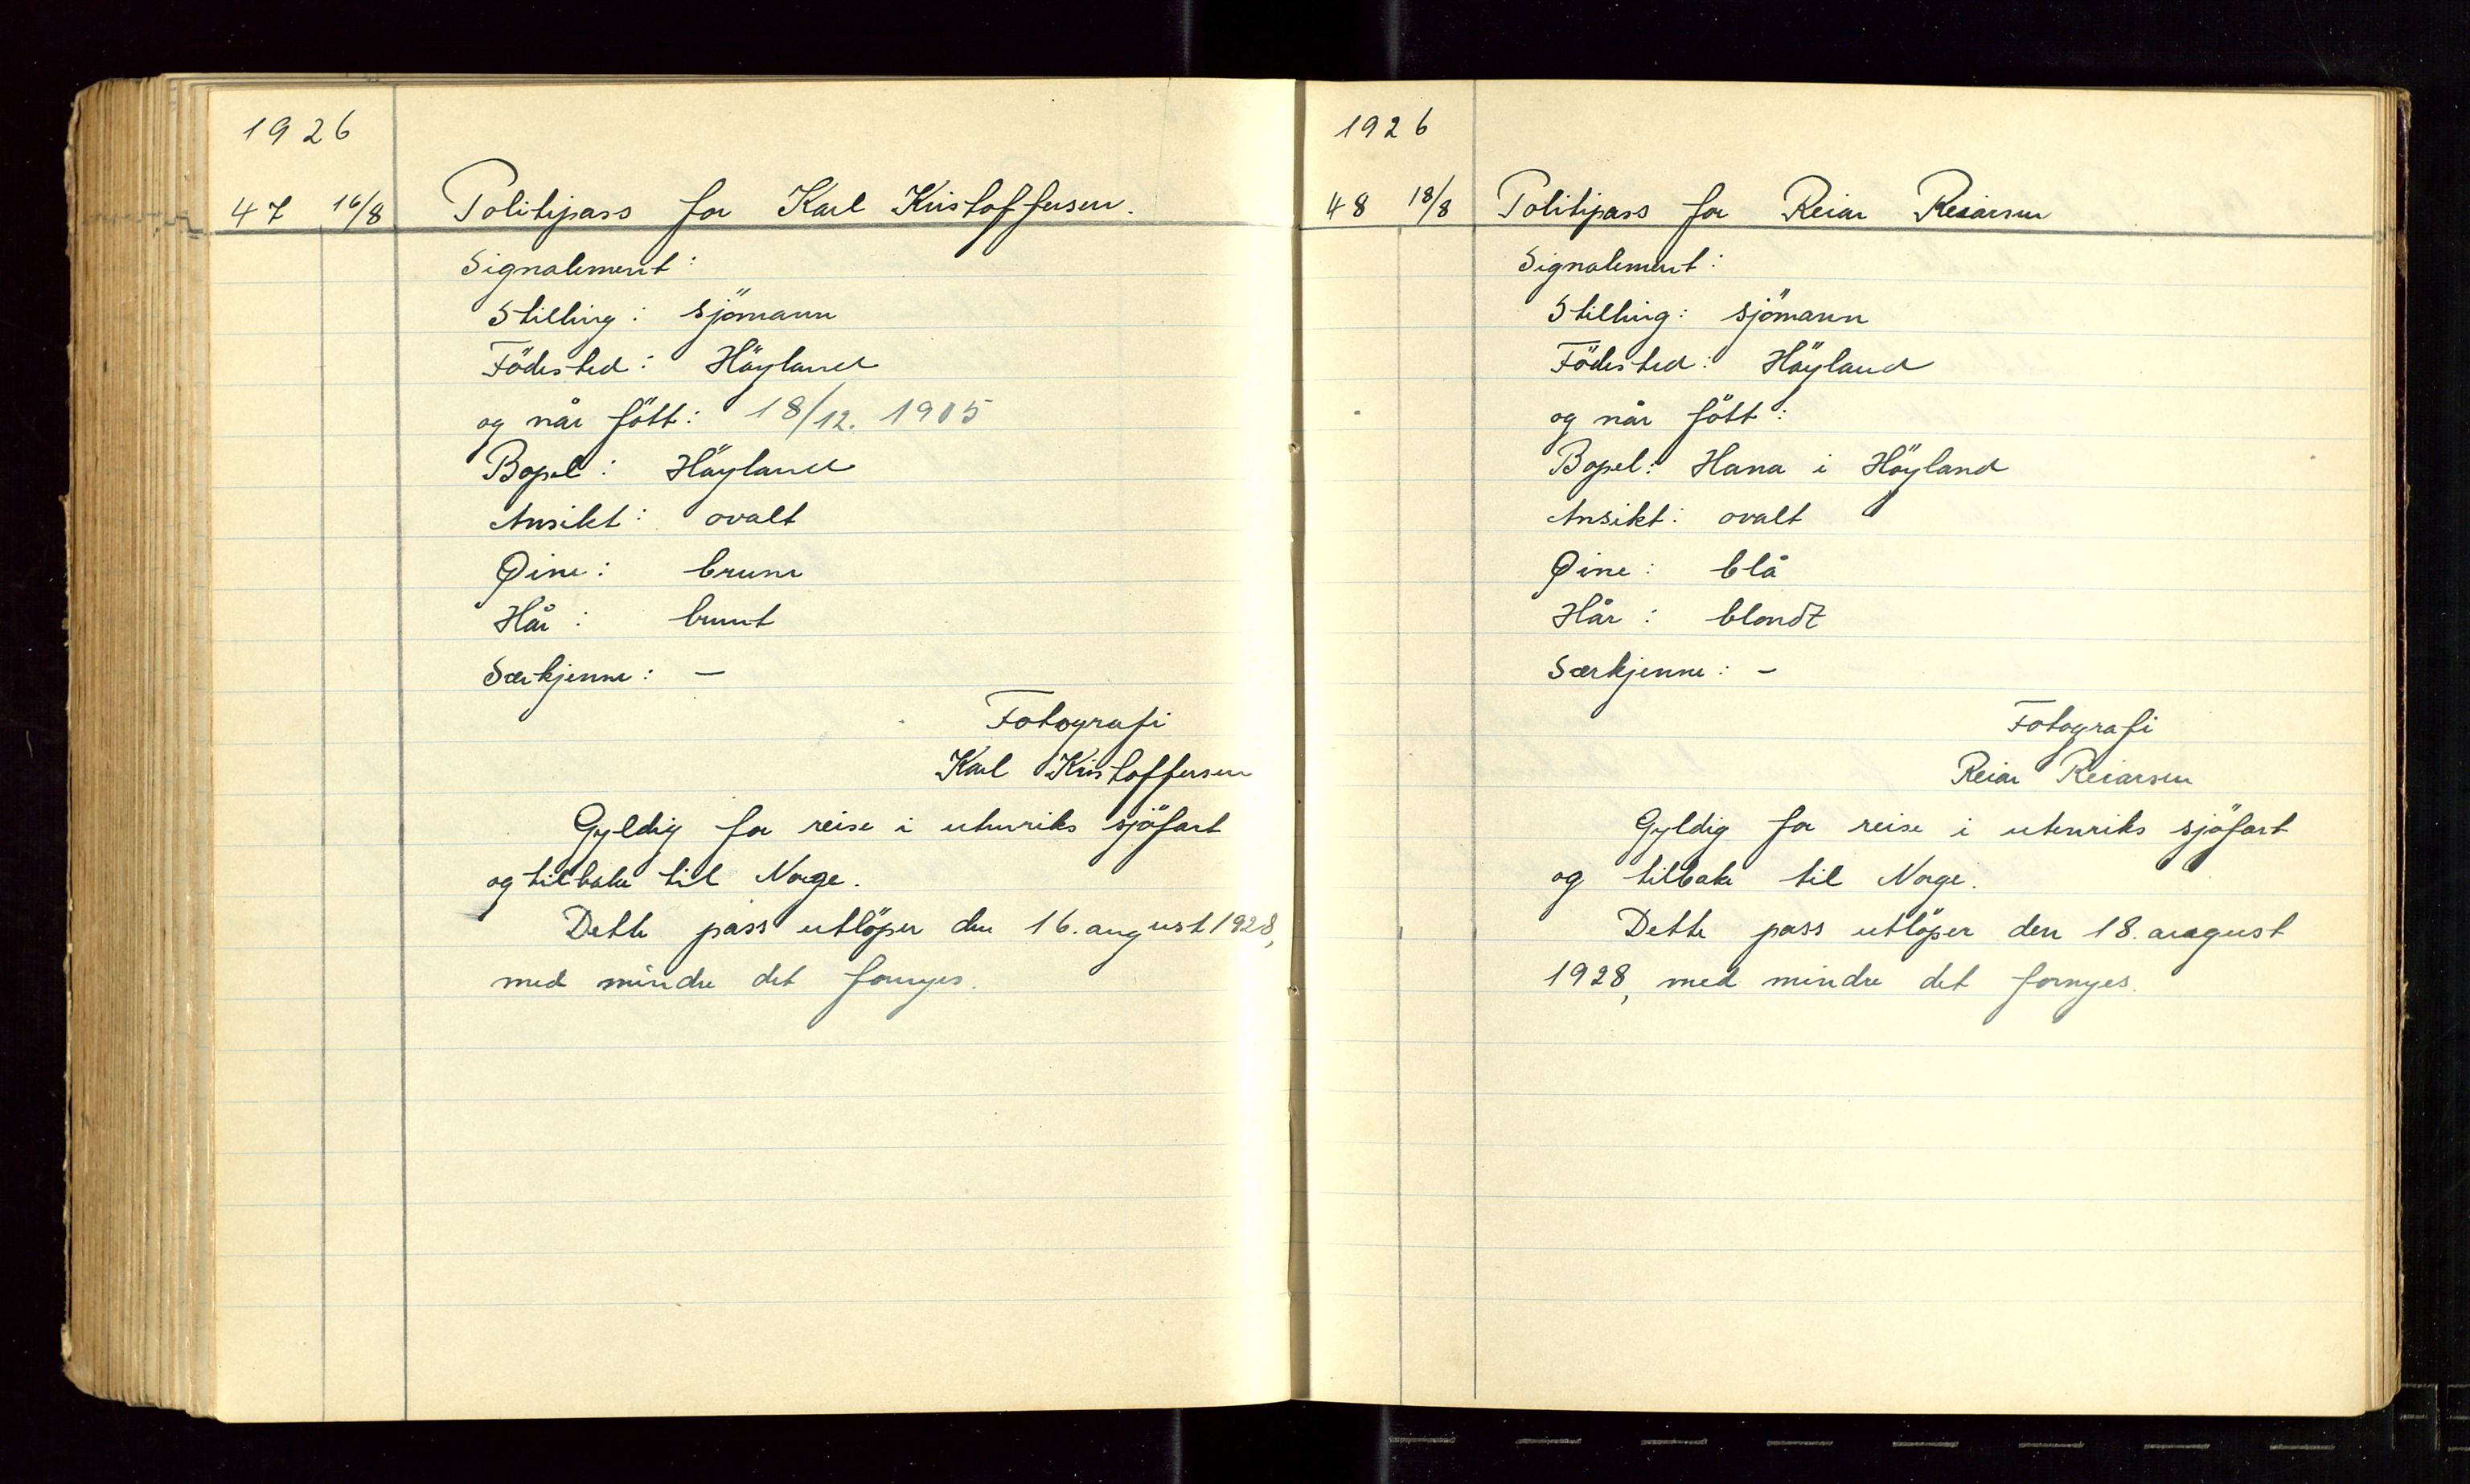 1926
47 16/8 Politipass for Karl Kristoffersen.
Signalement:
Stilling: sjömann
Födested: Höyland
og når fött: 18/12. 1905
Bopel: Höyland
Ansikt: ovalt
Øine: brune
Hår: brunt
Særkjenne: –
Fotografi
Karl Kristoffersen
Gyldig for reise i utenriks sjöfart
og tilbake til Norge.
Dette pass utlöper den 16. august 1928,
med mindre det fornyes.
1926
48 18/8 Politipass for Reiar Reiarsen
Signalement:
Stilling: sjömann
Födested: Höyland
og når fött:
Bopel: Hana i Höyland
Ansikt: ovalt
Øine: blå
Hår: blondt
Særkjenne: –
Fotografi
Reiar Reiarsen
Gyldig for reise i utenriks sjöfart
og tilbake til Norge.
Dette pass utlöper den 18. august
1928, med mindre det fornyes.